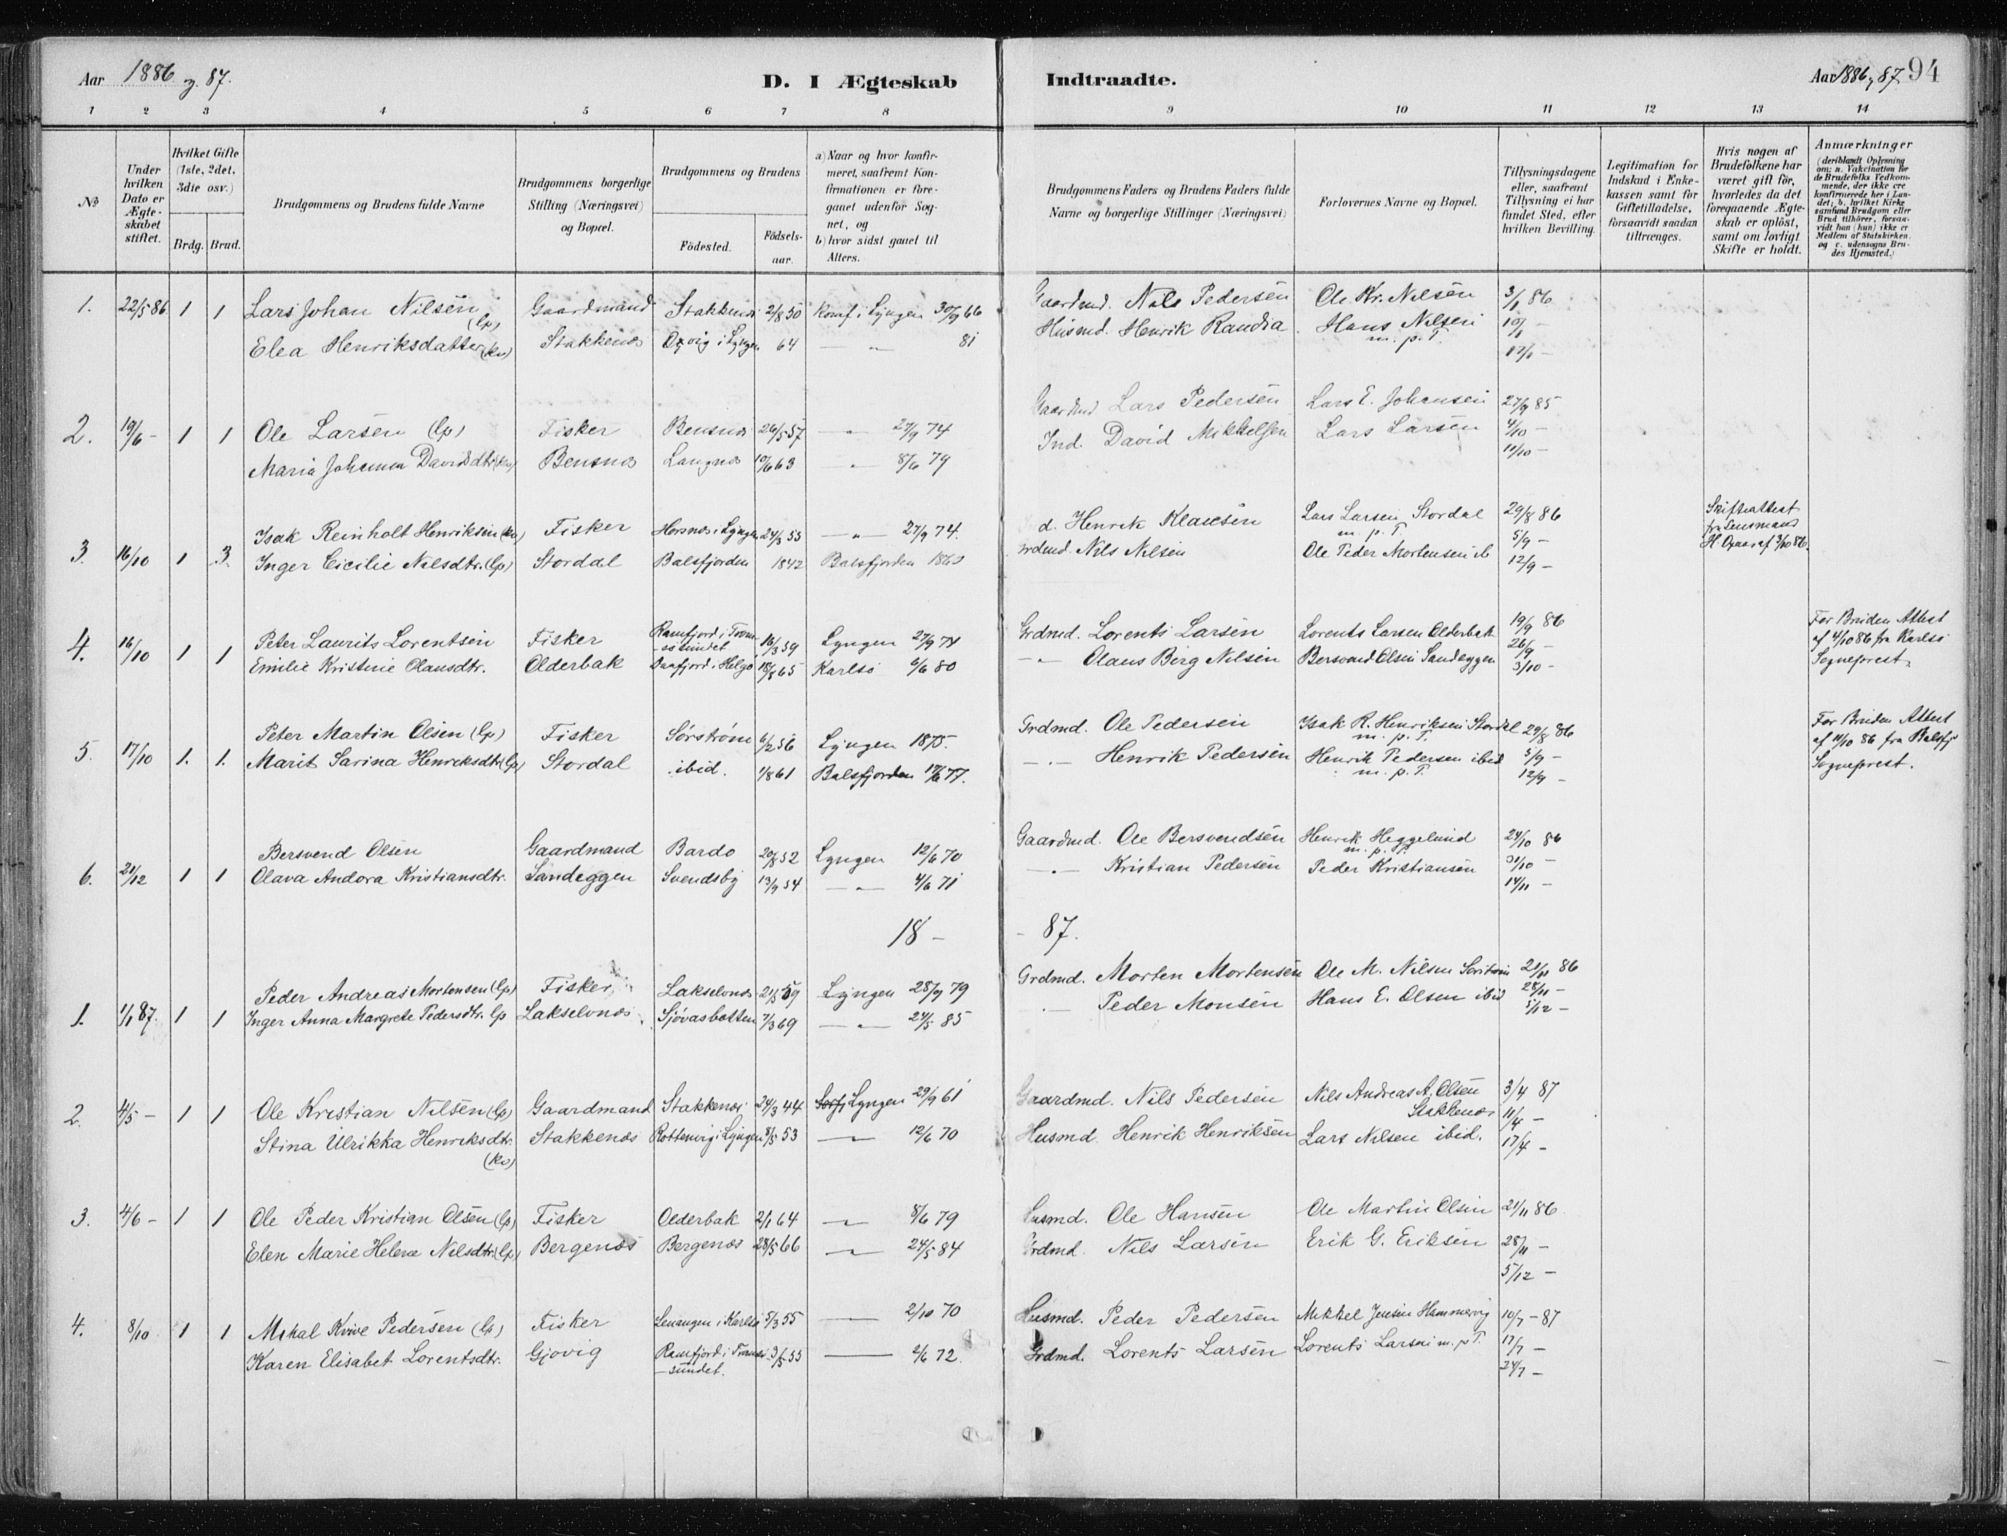 Aar 1886 og 87.
D. I Ægteskab Indtraadte.
Aar 1886 og 87. 94
1 2 3 4 5 6 7 8 9 10 11 12 13 14
No
Under hvilken Dato er Ægteskabet stiftet.
Hvilket Gifte (1ste, 2det, 3die osv.)
Brdg. Brud.
Brudgommens og Brudens fulde Navne
Brudgommens borgerlige Stilling (Næringsvei) og Bopæl.
Brudgommens og Brudens
Födested. Födsels-aar.
a) Naar og hvor konfirmeret, saafremt Konfirmationen er foregaaet udenfor Sognet, og
b) hvor sidst gaaet til Alters.
Brudgommens Faders og Brudens Faders fulde Navne og borgerlige Stillinger (Næringsvei)
Forlovernes Navne og Bopæl.
Tillysningsdagene eller, saafremt Tillysning ei har fundet Sted, efter hvilken Bevilling.
Legitimation for Indskud i Enkekassen samt for Giftetilladelse, forsaavidt saadan tiltrænges.
Hvis nogen af Brudefolkene har været gift før, hvorledes da det foregaaende Ægteskab er oplöst, samt om lovligt Skifte er holdt.
Anmærkninger (deriblandt Oplysning om: a. Vakcination for de Brudefolks Vedkommende, der ikke ere konfirmerede her i Landet; b. hvilket Kirkesamfund Brudgom eller Brud tilhörer, forsaavidt han (hun) ikke er Medlem af Statskirken, og c. udensogns Brudes Hjemsted.)
1. 22/5 86 1 1 Lars Johan Nilsen (lp) Gaardmand Stakkenæs 2/8 50 Konf i Lyngen 30/9 66 Gaardmd. Nils Pedersen Ole Kr. Nilsen 3/1 86
Elea Henriksdatter (kv) Stakkenæs i Lyngen 64 — „ 81 Husmd. Henrik Randia Hans Nilsen m. p. T. 10/1 —
17/1 —
2. 19/6 — 1 1 Ole Larsen (lp) Fisker Bensnes 26/5 57 — „ 27/9 74 Gaardmd Lars Pedersen Lars E. Johansen 27/9 85
Maria Johanna Davidsdtr (kv) Bensnæs Langnes 10/6 63 „ 8/6 79 Ind. David Mikkelsen Lars Larsen 4/10 —
11/10 —
3. 16/10 1 3. Isak Reinholt Henriksen (kv) Fisker Hersnes i Lyngen 24/3 53 — „ 27/9 74. d. Henrik Klausen Lars Larsen Stordal m. p. T. 29/8 86 Skifteattest fra Lensmand
Inger Cicilie Nilsdtr. (lp) Stordal Balsfjorden 1842 Balsfjorden Nils Nilsen Ole Peder Mortensen ib 5/9 — af 3/10 86.
12/9 —
4. 16/10 1 1 Peter Laurits Lorentsen Fisker Ramfjord i Tromsøsundet 16/3 59 Lyngen 27/9 74 Grdmd. Lorents Larsen Lorents Larsen Olderbak 19/9 86 For Bruden Attest
Emilie Kristine Olausdtr. Olderbak i Helgø 18/8 65 Karlsø 6/6 80 — „ — Olaus Berg Nilsen Bersvend Olsen Sandeggen 26/9 — af 4/10 86 fra Karlsø
3/10 — Sogneprest.
5. 17/10 1. 1. Peter Martin Olsen (lp) Fisker Sørstrøm 6/2 56 Lyngen 1875. Grdmd. Ole Pedersen Isak R. Henriksen Stordal m. p. T. 29/8 86 For Bruden Attest
Marit Sarina Henriksdtr (lp) Stordal ibid. 1/8 61 Balsfjorden 17/6 77. — „ — Henrik Pedersen Henrik Pedersen ibid m. p. T. 5/9 — af 11/10 86 fra Balsfj
12/9 — Sogneprest.
6. 21/12 1 1 Bersvend Olsen Gaardmand Bardo 20/8 52 Lyngen 12/6 70 Gaardmd. Ole Bersvendsen Henrik Heggelund m. p. T. 24/10 86
Olava Andora Kristiansdtr. Sandeggen Svendsby 13/9 54 — „ — 4/6 71 — „ — Kristian Pedersen Peder Kristiansen 31/10 —
14/11 —
18 — - 87.
1. 1/1 87. 1 1 Peder Andreas Mortensen (lp) Fisker Lakselvnes 21/5 59 Lyngen 28/9 79 Grdmd. Morten Mortensen Ole M. Nilsen 21/11 86
Inger Anna Margrete Pedersdtr. lp Lakselvnes Sjövasbotten 7/3 69 — „ — 24/5 85 — Peder Monsen Hans E. Olsen ibid 28/11 —
5/12 —
2. 4/5 — 1 1 Ole Kristian Nilsen (lp) Gaardmand Stakkenæs 24/3 44 Lyngen 29/9 61 Gaardmd. Nils Pedersen Nils Andreas A. Olsen Stakkenæs 3/4 87
Stina Ulrikka Henriksdtr. (kv) Stakkenæs Rottenvig i Lyngen 8/5 53 — „ — 12/6 70 Husmd. Henrik Henriksen Lars Nilsen ibid. 11/4 —
17/4 —
3. 4/6 — 1 1 Ole Peder Kristian Olsen (lp) Fisker Olderbak 2/1 64 — „ — 8/6 79 Husmd. Ole Hansen Ole Martin Olsen 21/11 86.
Elen Marie Helene Nilsdtr (lp) Bergenæs Bergenæs 28/5 66 — „ — 24/5 84 Grdmd. Nils Larsen Erik G. Eriksen 28/11 —
5/12 —
4. 8/10 1 1 Mikal Kvive Pedersen (lp) Fisker Lenangen i Karlsø 5/3 55 — 2/10 70 Husmd. Peder Pedersen Mikkel Jensen Hammervig 10/7 — 87
Karen Elisabet Lorentsdtr. Gjovig Ramfjord i Tromsøsundet. 3/5 55 — 2/6 72. Grdmd. Lorents Larsen Lorents Larsen m. p T. 17/7 —
24/7 —